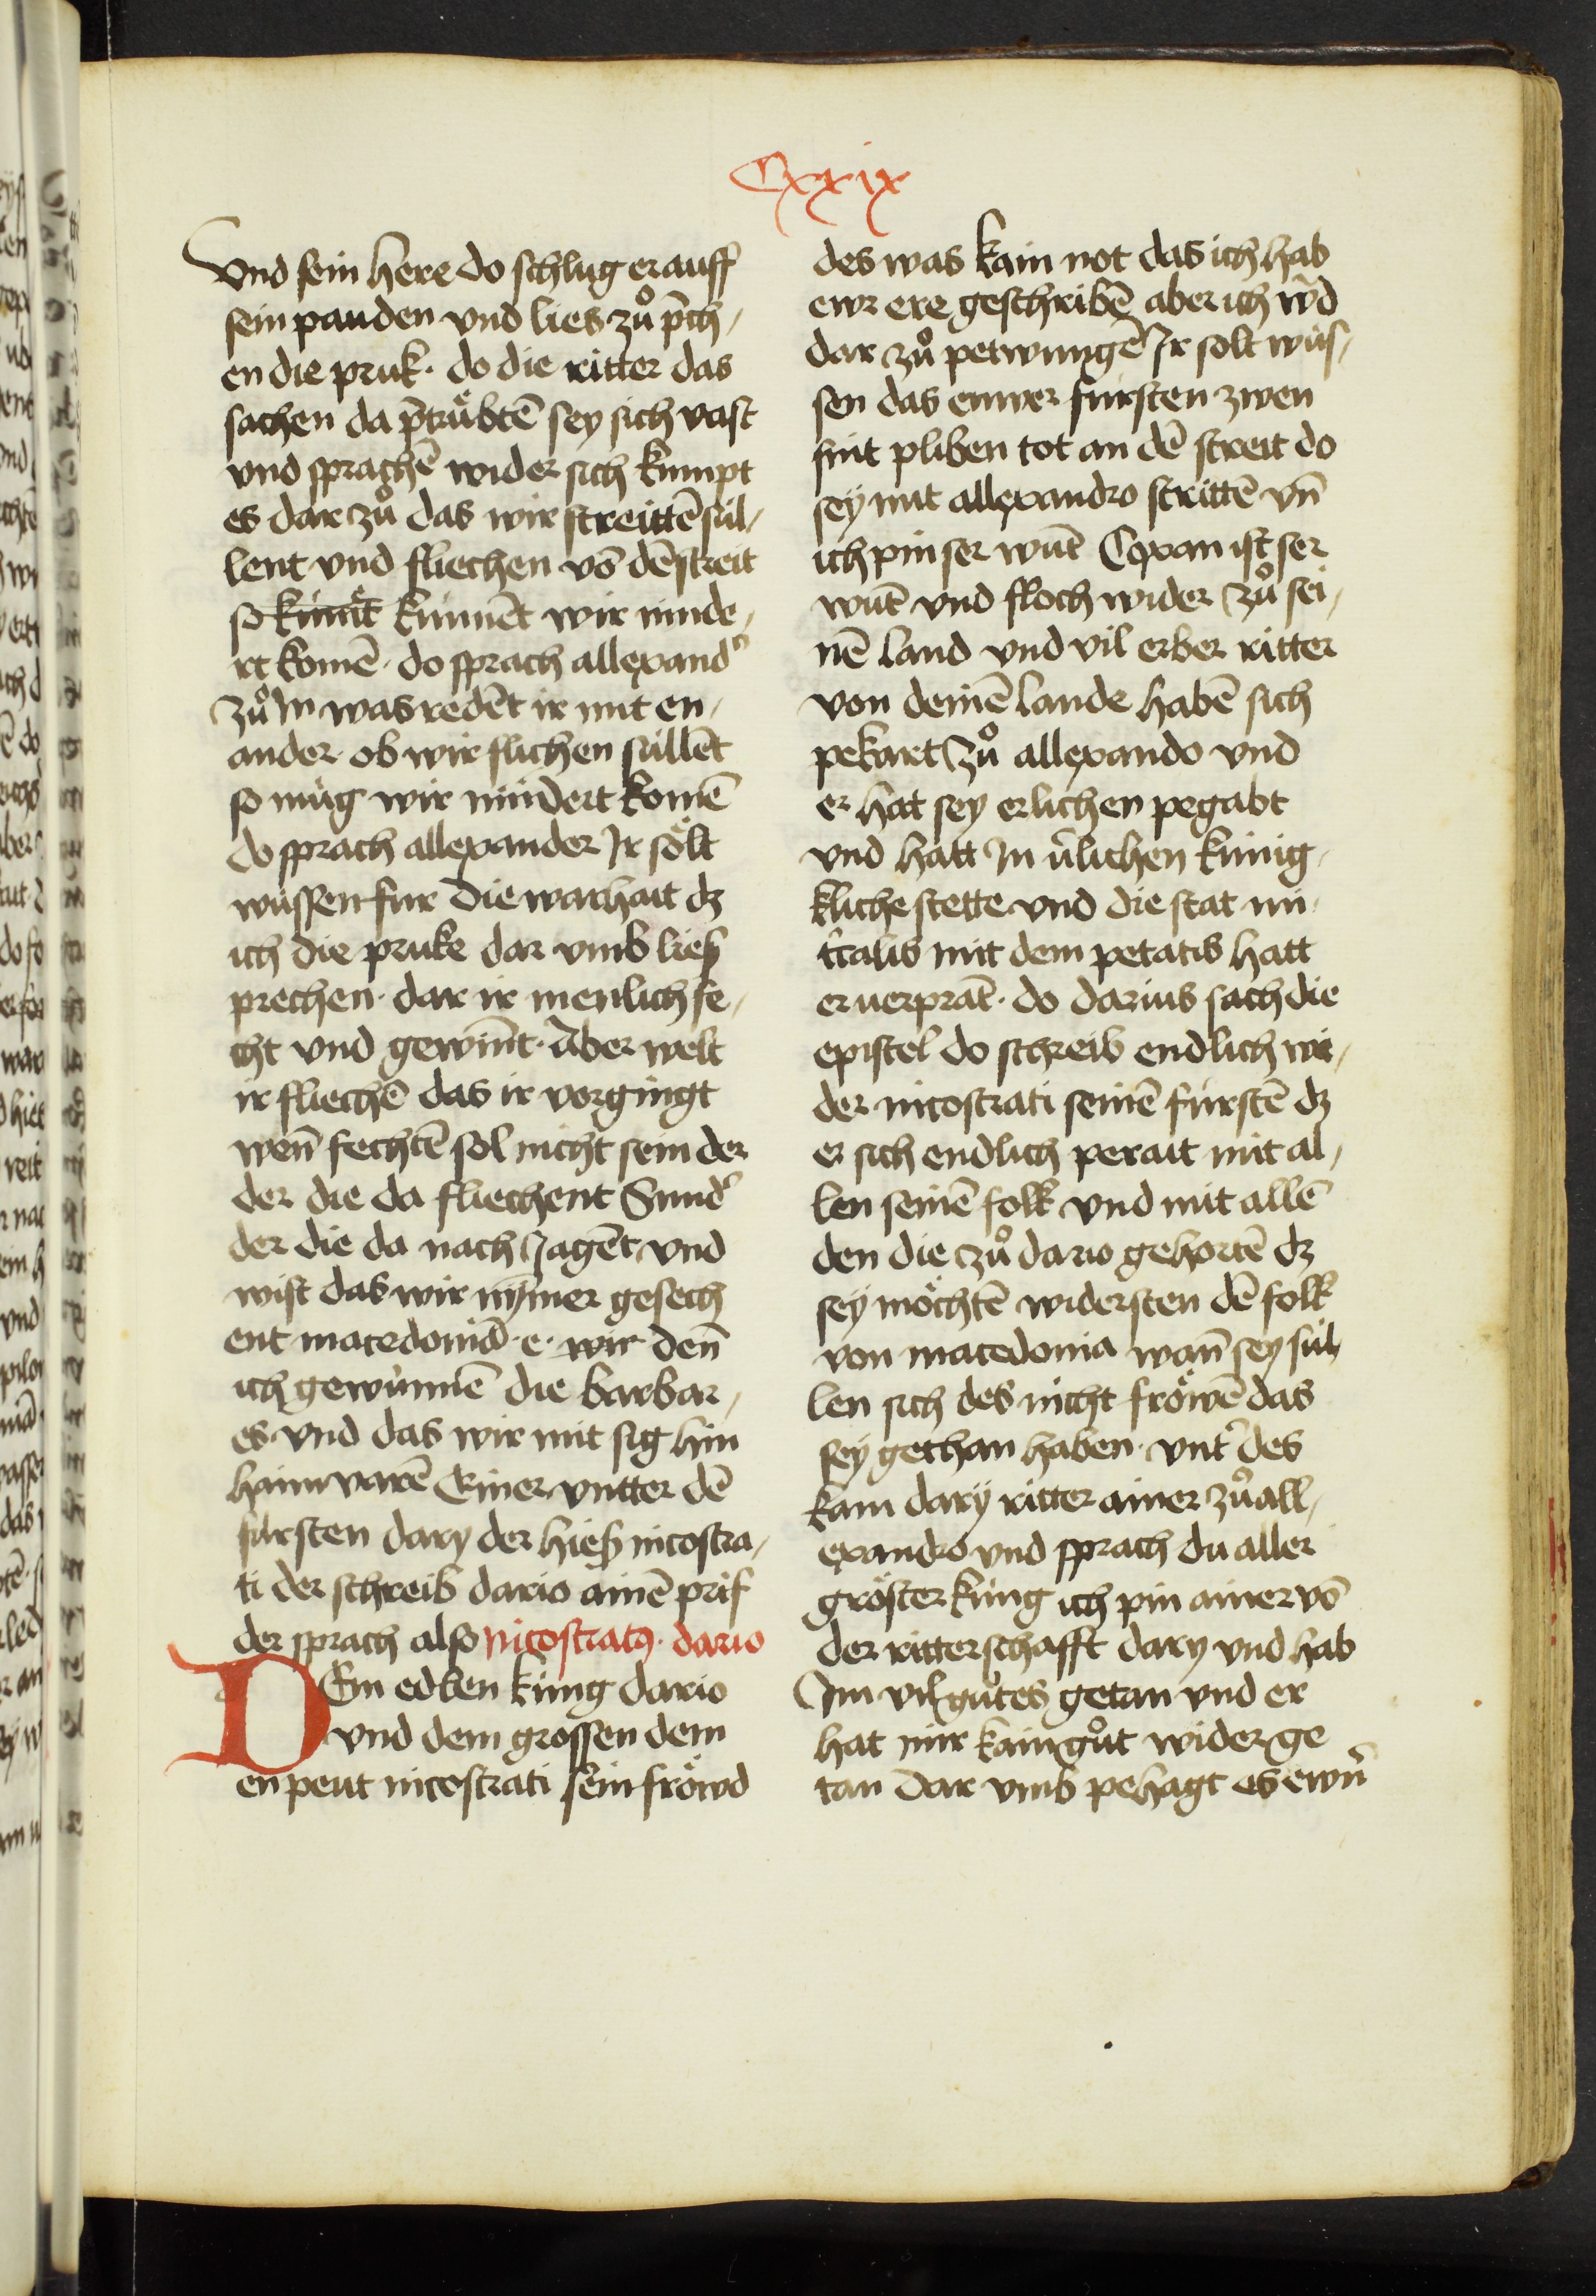 Cxxix
vnd sein here do schlug er auff
sein panden vnd lies zů p̄ch-
en die pruk · do die ritter das
sachen da p̄trůbtē sey sich vast
vnd sprachē wider sich kumpt
es dar zů das wir streittē sul-
lent vnd fliechen vō dē streit
so kumēt kunnēt wir ninde-
rt komē · do sprach allexand̾
zů In was redēt ir mit en-
ander · ob wir flichen sullēt
so mug wir nindert komē
do sprach allexander Ir sölt
wussen fur die warhait dz
ich die pruke dar vmb liesz
prechen · dar ir menlich fe-
cht vnd gewin̄t · Aber welt
ir fliechē das ir vorgingt
wen̄ fechtē sol nicht sein der
der die da fliechent Sund̾
der die da nach Jagēt vnd
wist das wir nym̄er gesech
ent macedoniā · e · wir den̄
ich gewunnē die barbar-
es vnd das wir mit sig hin
haim varē Einer vntter dē
fursten dary der hiesz nicostra-
ti der schreib dario ainē prif
der sprach also nicostratꝰ · dario
DEm edlen kung dario
vnd dem grossen dem
en peut nicostrati sein fröwd
des was kain not das ich hab
ewr ere geschribē aber ich w̾d
dar zů petwungē Ir solt wus-
sen das ewer fursten zwen
sint pliben tot an dē streit do
sey mit allexandro strittē vn̄
ich pin ser wūt Coxan ist ser
wūt vnd floch wider zů sei-
nē land vnd vil erber ritter
von deinē lande habē sich
pekart zů allexando vnd
er hat sey erlichen pegabt
vnd hatt In v̾lichen kunig-
kliche stette vnd die stat mi-
t̾calis mit dem petatis hatt
er verprāt · do darius sach die
epistel do schreib endlich wi-
der nicostrati seinē furstē dz
er sich endlich perait mit al-
len seinē folk vnd mit allē
den die zů dario gehortē dz
sey möchtē widersten dē folk
von macedonia wan̄ sey sul-
len sich des nicht fröwē das
sey gethan haben · vnt̾ des
kam dary ritter ainer zů all-
exandro vnd sprach du aller
gröster kung ich pin ainer vō
der ritterschafft dary vnd hab
Im vil gůtes getan vnd er
hat mir kain gůt wider ge
tan dar vmb pehagt es ewrn̾